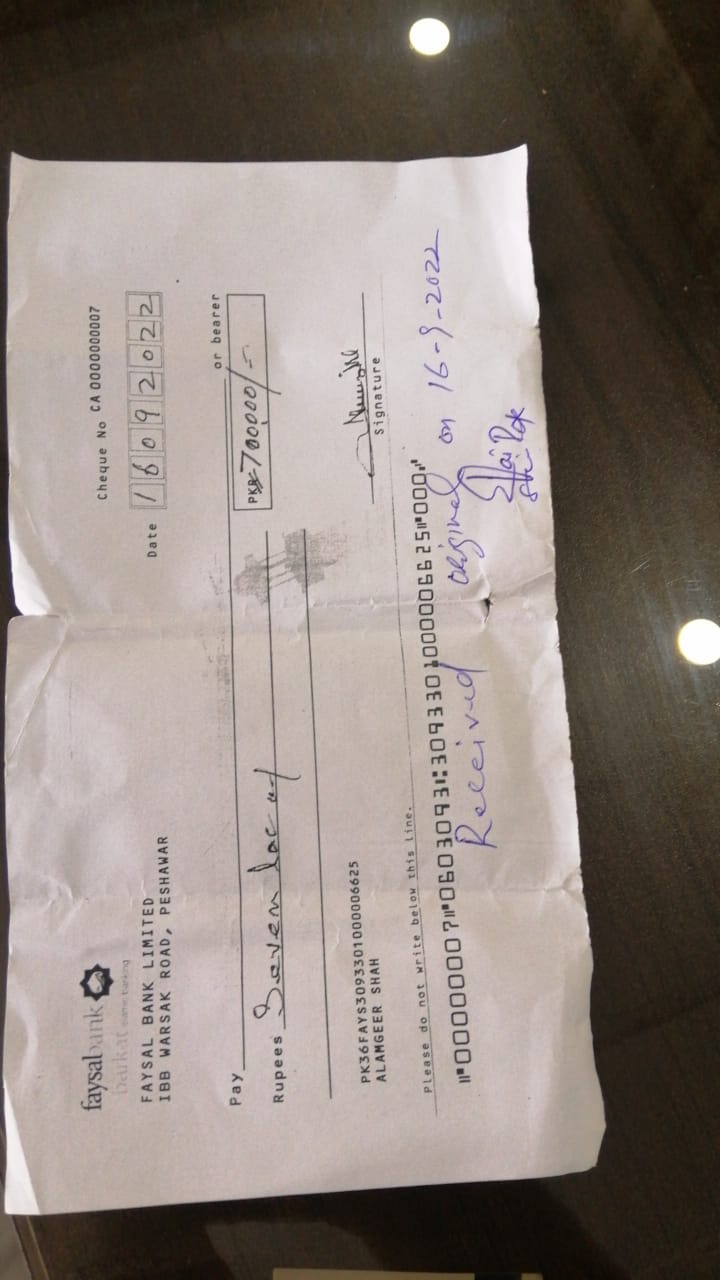 faysalbank
barkat islamic banking
FAYSAL BANK LIMITED
IBB WARSAK ROAD, PESHAWAR
Cheque No CA 0000000007
Date 16092022
Pay or bearer
Rupees Seven Lac only
PKR 700000/-
PK36FAYS3093301000006625
ALAMGEER SHAH
Signature
Please do not write below this line.
⑈00000007⑈0603093⑆3093301000006625⑈000⑈
Received original on 16-9-2022